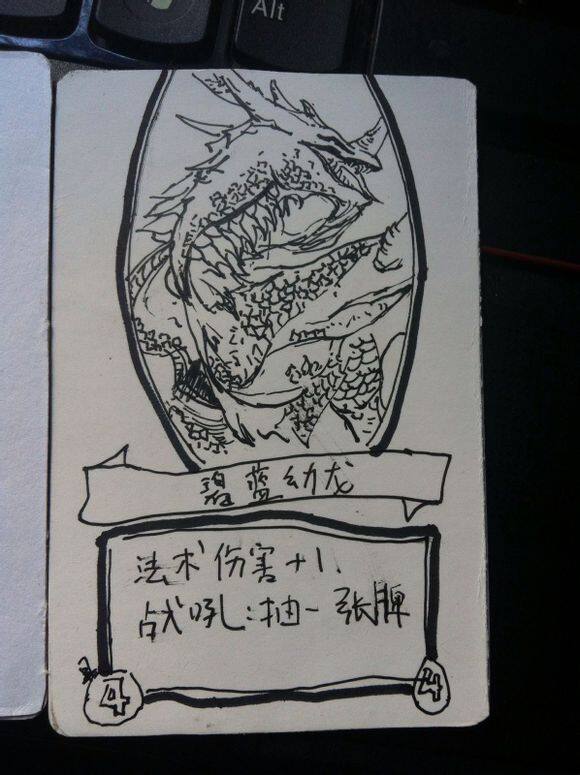 Alt
碧蓝幼龙
法术伤害+1.
战吼:抽一张牌
4
4